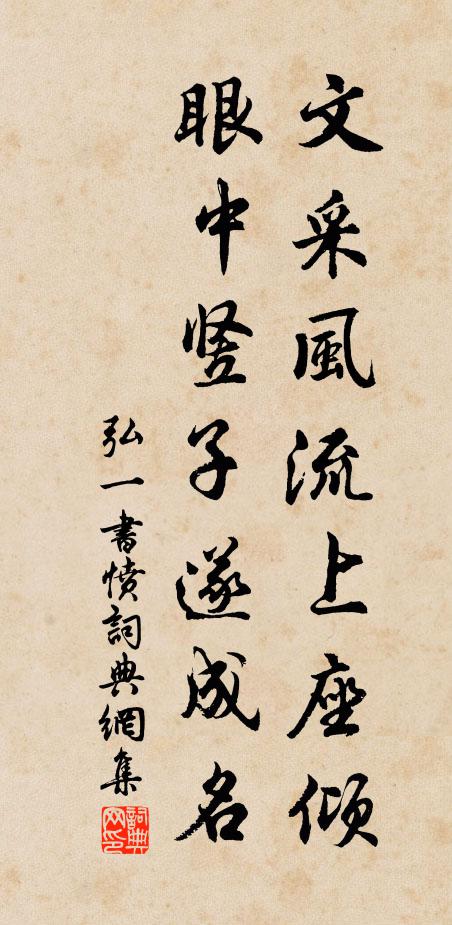 文采風流上座傾
眼中竖子遂成名
弘一書憤詞典網集
詞典网印